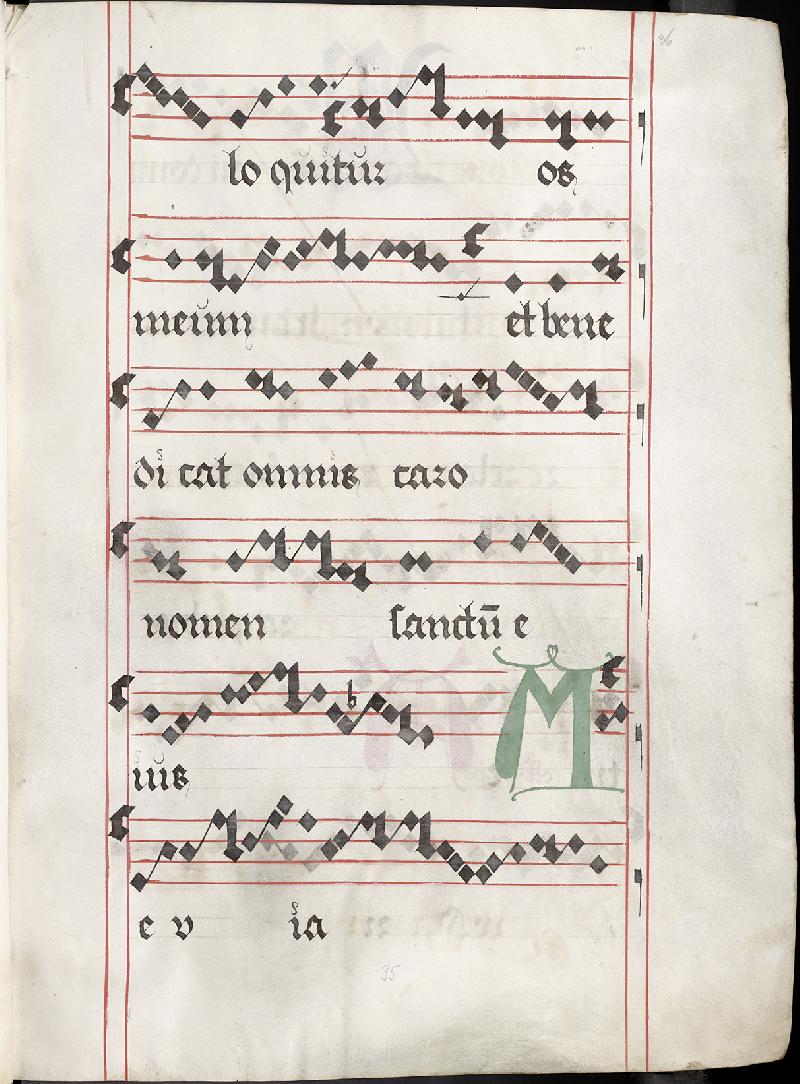 36
lo quitur os
meum et bene
di cat omnis caro
nomen sanctū e
ius M
e v ia
35